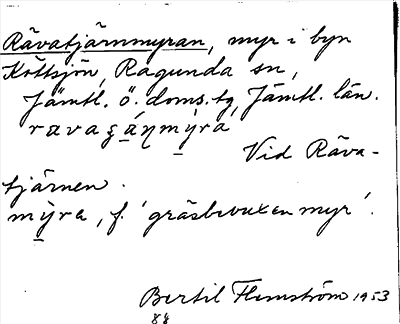 Rävatjärnmyran, myr i byn
Köttsjön, Ragunda sn,
Jämtl. ö. doms.tg, Jämtl. län.
Vid Räva-
tjärnen.
mỳra, f. 'gräsbevuxen myr'.
Bertil Flemström 1953